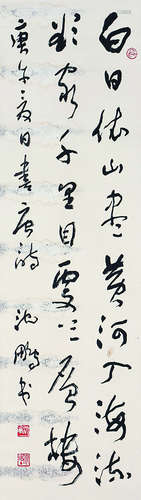 白日依山尽黄河入海流
欲穷千里目更上一层楼
庚午夏日书唐诗 沈鹏书